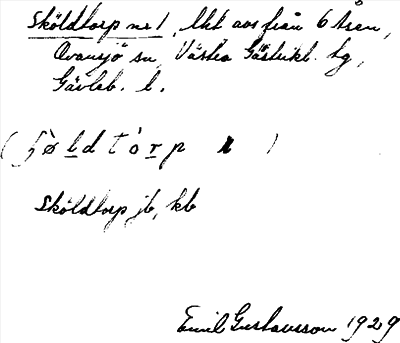 Sköldtorp nr 1, lht avs från 6 Åren,
Ovansjö sn, Västra Gästrikl. hg,
Gävleb. l.
Sköldtorp jb, kb
Emil Gustavsson 1929